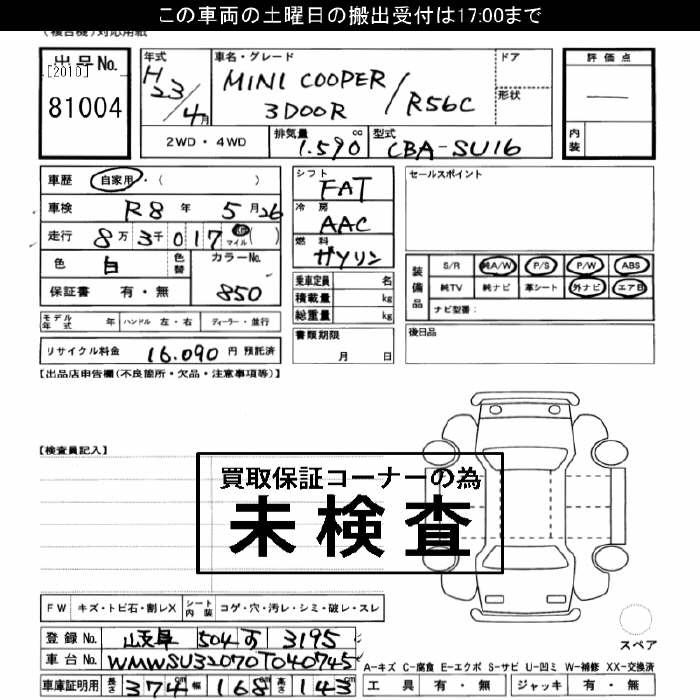 この車両の土曜日の搬出受付は17:00まで
(複合機)対応用紙
出品No.
[2010]
81004
年式
H23/4月
車名・グレード
MINI COOPER
3DOOR / R56C
ドア
形状
評価点
—
内装
2WD・4WD
排気量
1.590 cc
型式
CBA-SU16
車歴 自家用・( )
車検 R8 年 5 月 26
走行 8万 3千 017 マイル ( )
色 白 色替 カラーNo.
850
保証書 有・無
モデル年式 年 ハンドル 左・右 ディーラー・並行
リサイクル料金 16.090 円 預託済
シフト
FAT
冷房
AAC
燃料
ガソリン
乗車定員 名
積載量 kg
総重量 kg
書類期限
月 日
セールスポイント
装備品
S/R 純A/W P/S P/W ABS
純TV 純ナビ 革シート 外ナビ エアB
ナビ型番:
後日品
【出品店申告欄(不良箇所・欠品・注意事項等)】
【検査員記入】
買取保証コーナーの為
未検査
FW キズ・トビ石・割レX シート内装 コゲ・穴・汚レ・シミ・破レ・スレ
登録No. 岐阜 504 す 3195
車台No. WMWSU32070T040745
車庫証明用 長さ 374 cm 幅 168 cm 高さ 143 cm
スペア
A-キズ C-腐食 E-エクボ S-サビ U-凹ミ W-補修 XX-交換済
工具 有・無 ジャッキ 有・無